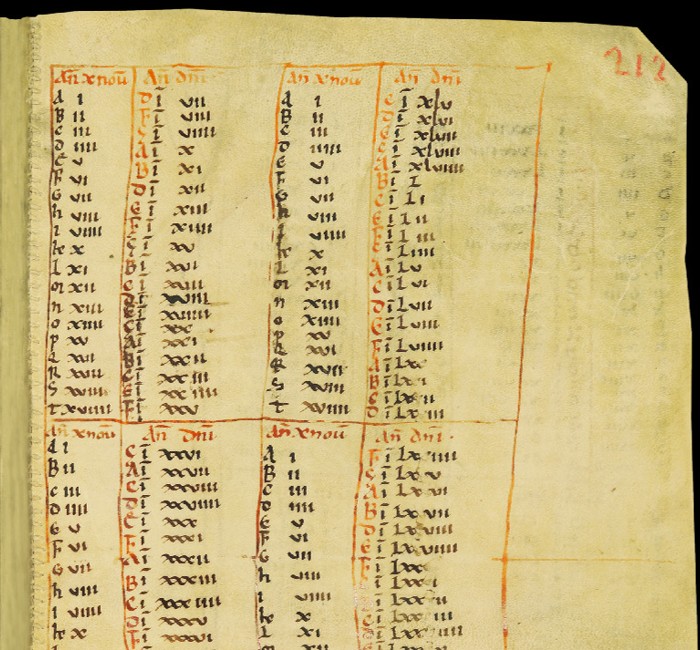 212
Añ xnoū Añ dn̄i Añ xnoū Añ dn̄i
A i D ī vii A i C ī xlv
B ii F ī viii B ii D ī xlvi
C iii G ī viiii C iii E ī xlvii
D iiii A ī x D iiii G ī xlviii
E v B ī xi E v A ī xlviiii
F vi D ī xii F vi B ī l
G vii E ī xiii G vii C ī li
h viii F ī xiiii h viii E ī lii
i viiii G ī xv i viiii F ī liii
k x B ī xvi k x G ī liiii
l xi C ī xvii l xi A ī lv
m xii D ī xviii m xii C ī lvi
n xiii E ī xviiii n xiii D ī lvii
o xiiii G ī xx o xiiii E ī lviii
p xv A ī xxi p xv F ī lviiii
q xvi B ī xxii q xvi A ī lx
R xvii C ī xxiii R xvii B ī lxi
S xviii E ī xxiiii S xviii C ī lxii
t xviiii F ī xxv t xviiii D ī lxiii
Añ xnoū Añ dn̄i Añ xnoū Añ dn̄i
A i G ī xxvi A i F ī lxiiii
B ii A ī xxvii B ii G ī lxv
C iii C ī xxviii C iii A ī lxvi
D iiii D ī xxviiii D iiii B ī lxvii
E v E ī xxx E v D ī lxviii
F vi F ī xxxi F vi E ī lxviiii
G vii A ī xxxii G vii F ī lxx
h viii B ī xxxiii h viii G ī lxxi
i viiii C ī xxxiiii i viiii B ī lxxii
k x D ī xxxv k x C ī lxxiii
F ī xxxvi l xi D ī lxxiiii